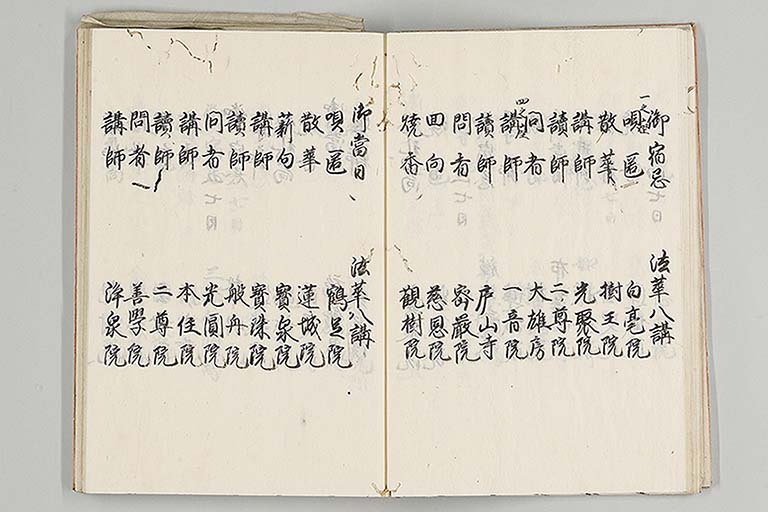 御宿忌 法華八講
唄匿 白毫院
散華 樹王院
講師 光聚院
讀師 二尊院
問者 大雄房
講師 一音院
讀師 庐山寺
問者 密嚴院
回向 慈恩院
焼香 觀樹院
御當日 法華八講
唄匿 鶴足院
散華 蓮城院
薪句 寳泉院
講師 寳珠院
讀師 般舟院
问者 光圓院
講師 本住院
讀師 二尊院
問者 善學院
講師 浄泉院